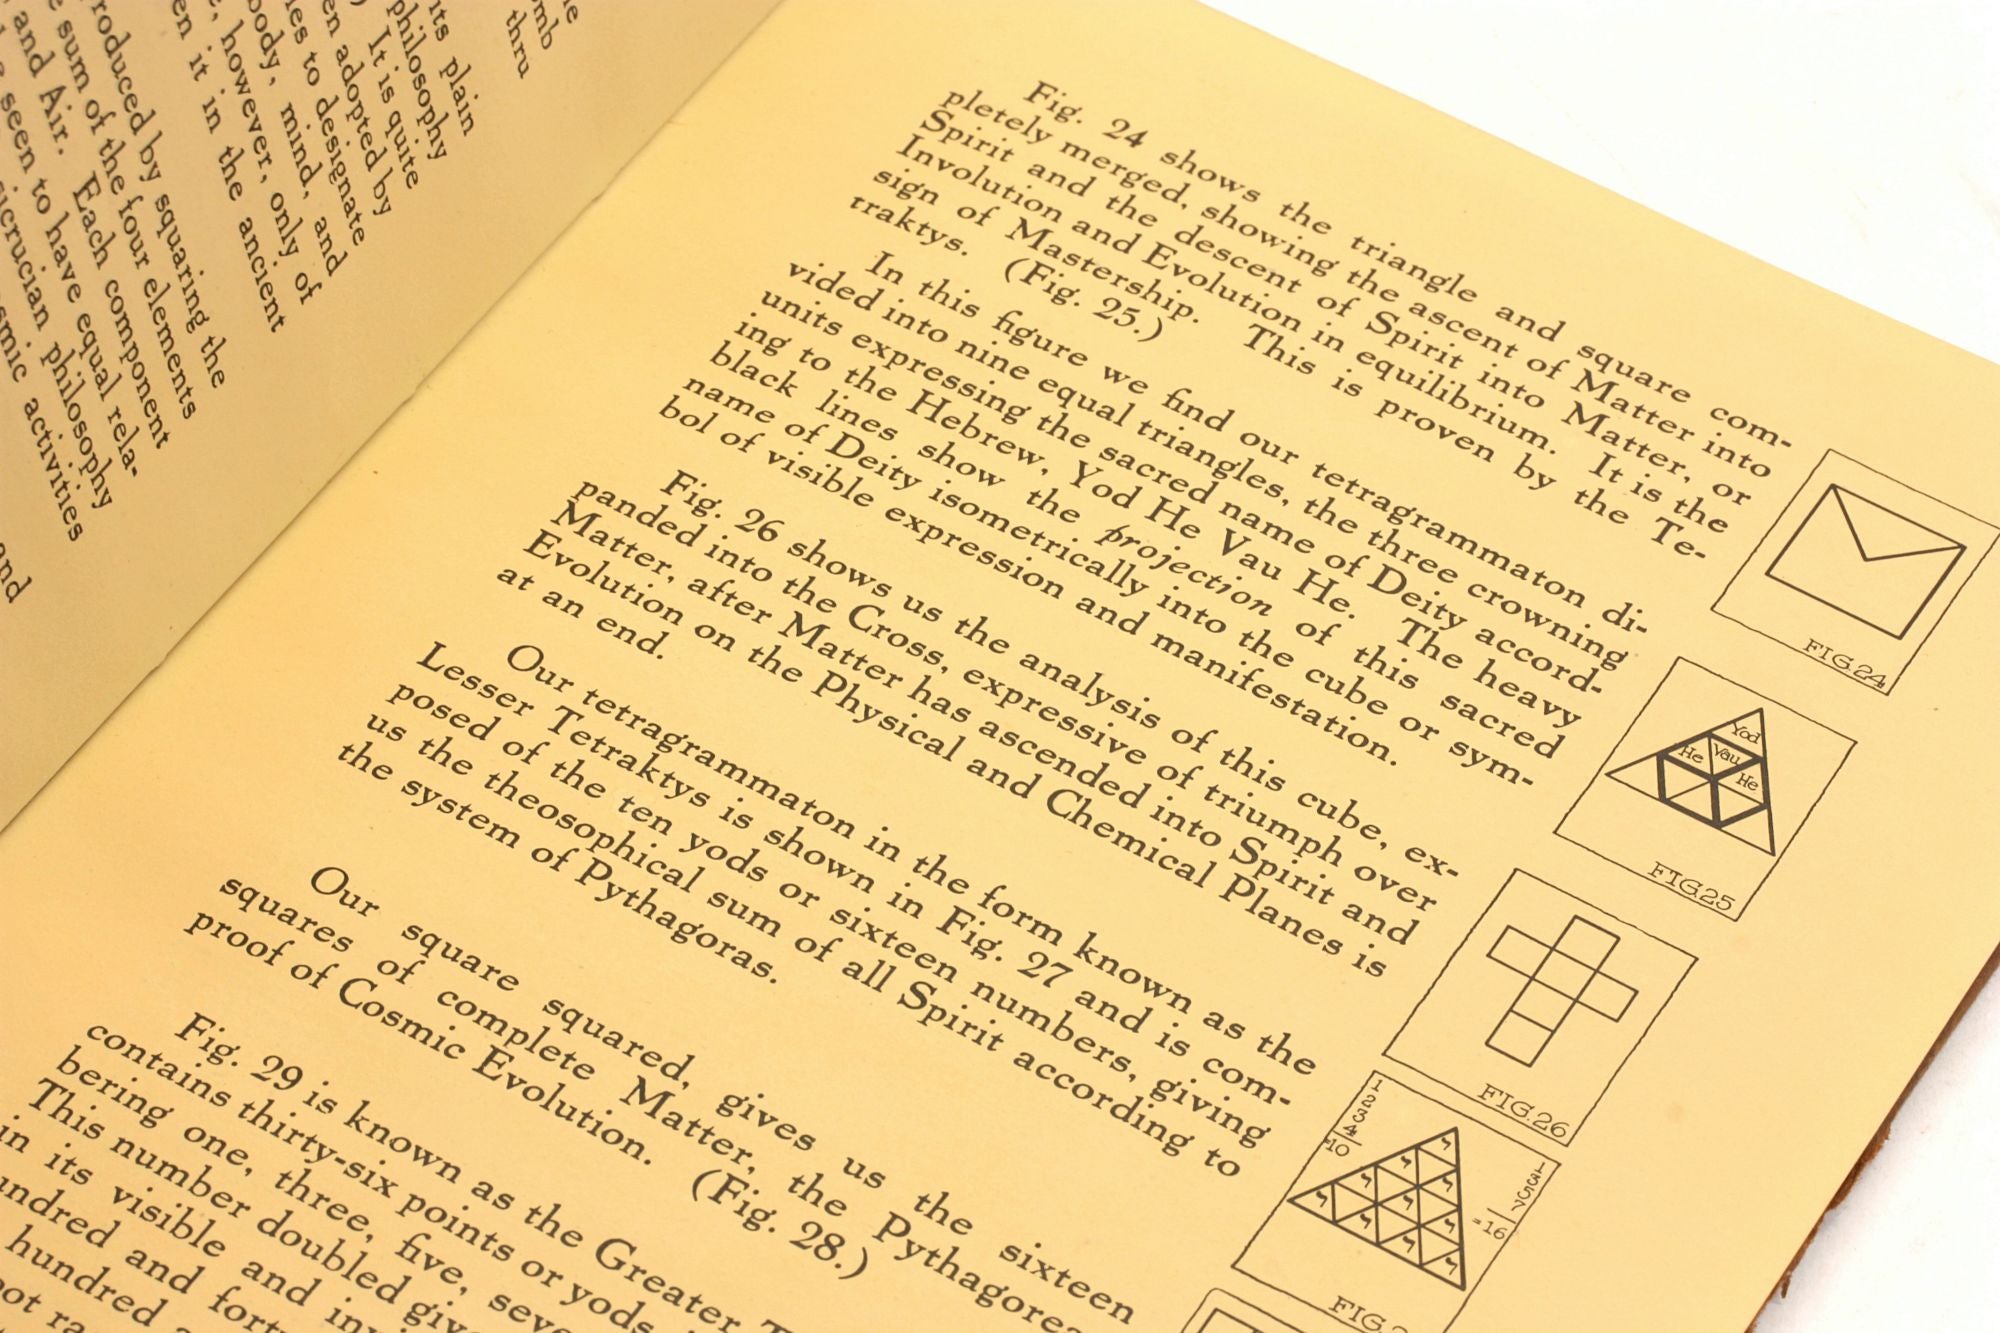 its plain
philosophy
It is quite
adopted by
to designate
body, mind, and
however, only of
it in the ancient
thru
produced by squaring the
sum of the four elements
and Air. Each component
seen to have equal rela-
philosophy
activities
and
Fig. 24 shows the triangle and square com-
pletely merged, showing the ascent of Matter into
Spirit and the descent of Spirit into Matter, or
Involution and Evolution in equilibrium. It is the
sign of Mastership. This is proven by the Te-
traktys. (Fig. 25.)
In this figure we find our tetragrammaton di-
vided into nine equal triangles, the three crowning
units expressing the sacred name of Deity accord-
ing to the Hebrew, Yod He Vau He. The heavy
black lines show the projection of this sacred
name of Deity isometrically into the cube or sym-
bol of visible expression and manifestation.
Fig. 26 shows us the analysis of this cube, ex-
panded into the Cross, expressive of triumph over
Matter, after Matter has ascended into Spirit and
Evolution on the Physical and Chemical Planes is
at an end.
Our tetragrammaton in the form known as the
Lesser Tetraktys is shown in Fig. 27 and is com-
posed of the ten yods or sixteen numbers, giving
us the theosophical sum of all Spirit according to
the system of Pythagoras.
Our square squared, gives us the sixteen
squares of complete Matter, the
proof of Cosmic Evolution. (Fig. 28.)
Fig. 29 is known as the Greater
contains thirty-six points or yods
bering one, three, five,
This number doubled
in its visible and
and
hundred
FIG.24
Yod
He Vau He
FIG.25
FIG.26
1
2
3
4
10
י
י י
י י י
י י י י
1
3
5
7
=16
FIG.